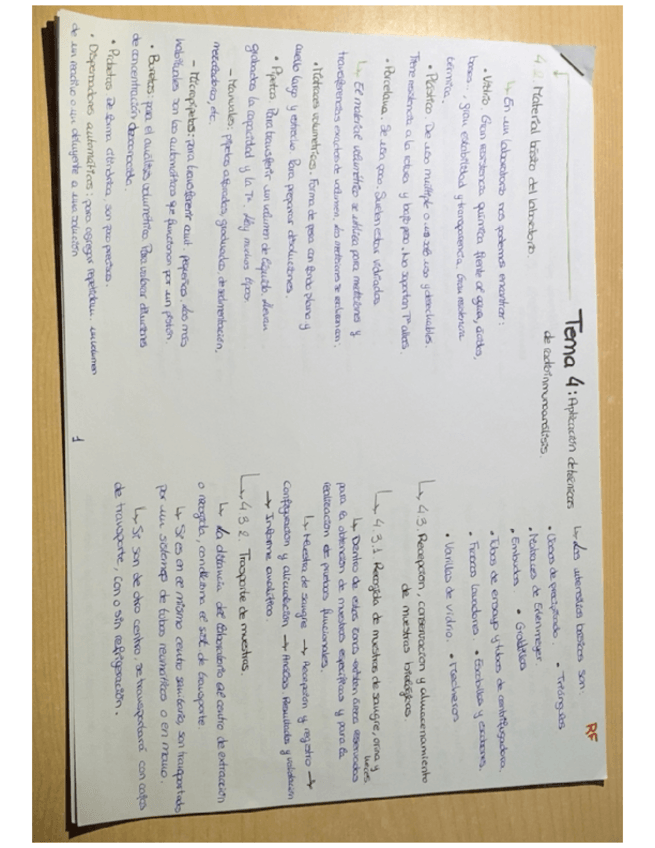 RF
Tema 4: Aplicación de técnicas
de radioinmunoanálisis.
4.2. Material básico del laboratorio.
↳ En un laboratorio nos podemos encontrar:
• Vidrio. Gran resistencia química frente al agua, ácidos,
bases..., gran estabilidad y transparencia. Gran resistencia
térmica.
• Plástico. De uso múltiple o un solo uso y desechables.
Tiene resistencia a la rotura y bajo peso. No soportan Tª altas.
• Porcelana. Se usa poco. Suelen estar vidriados
↳ El material volumétrico se utiliza para mediciones y
transferencias exactas de volumen. Las mediciones se realizan con:
• Matraces volumétricos. Forma de pera con fondo plano y
cuello largo y estrecho. Para preparar disoluciones.
• Pipetas. Para transferir un volumen de líquido. Llevan
grabados la capacidad y la Tª. Hay muchos tipos:
– Manuales: pipetas aforadas, graduadas, de sedimentación,
mezcladoras, etc.
– Micropipetas: para transferir cant. pequeñas. Las más
habituales son las automáticas que funcionan por un pistón.
• Buretas: para el análisis volumétrico. Para valorar diluciones
de concentración desconocida.
• Probetas. De forma cilíndrica, son poco precisas.
• Dispensadores automáticos: para agregar repetidam. un volumen
de un reactivo o un diluyente a una solución
1
↳ Los utensilios básicos son:
• Vasos de precipitado. • Triángulos
• Matraces de Erlenmeyer.
• Embudos. • Gradillas
• Tubos de ensayo y tubos de centrifugadora.
• Frascos lavadores • Escobillas y escobillones.
• Varillas de vidrio. • Mecheros
↳ 4.3. Recepción, conservación y almacenamiento
de muestras biológicas
↳ 4.3.1. Recogida de muestras de sangre, orina y
heces
↳ Dentro de estas zonas existen áreas reservadas
para la obtención de muestras específicas y para la
realización de pruebas funcionales.
↳ Muestra de sangre → Recepción y registro →
Centrifugación y alicuotación → Análisis. Resultados y validación
→ Informe analítico.
↳ 4.3.2. Trasporte de muestras.
↳ La distancia del laboratorio al centro de extracción
o recogida, condiciona el sist. de transporte.
↳ Si es en el mismo centro sanitario, son transportadas
por un sistema de tubos neumáticos o en mano.
↳ Si son de otro centro, se transportará con cajas
de transporte, con o sin refrigeración.